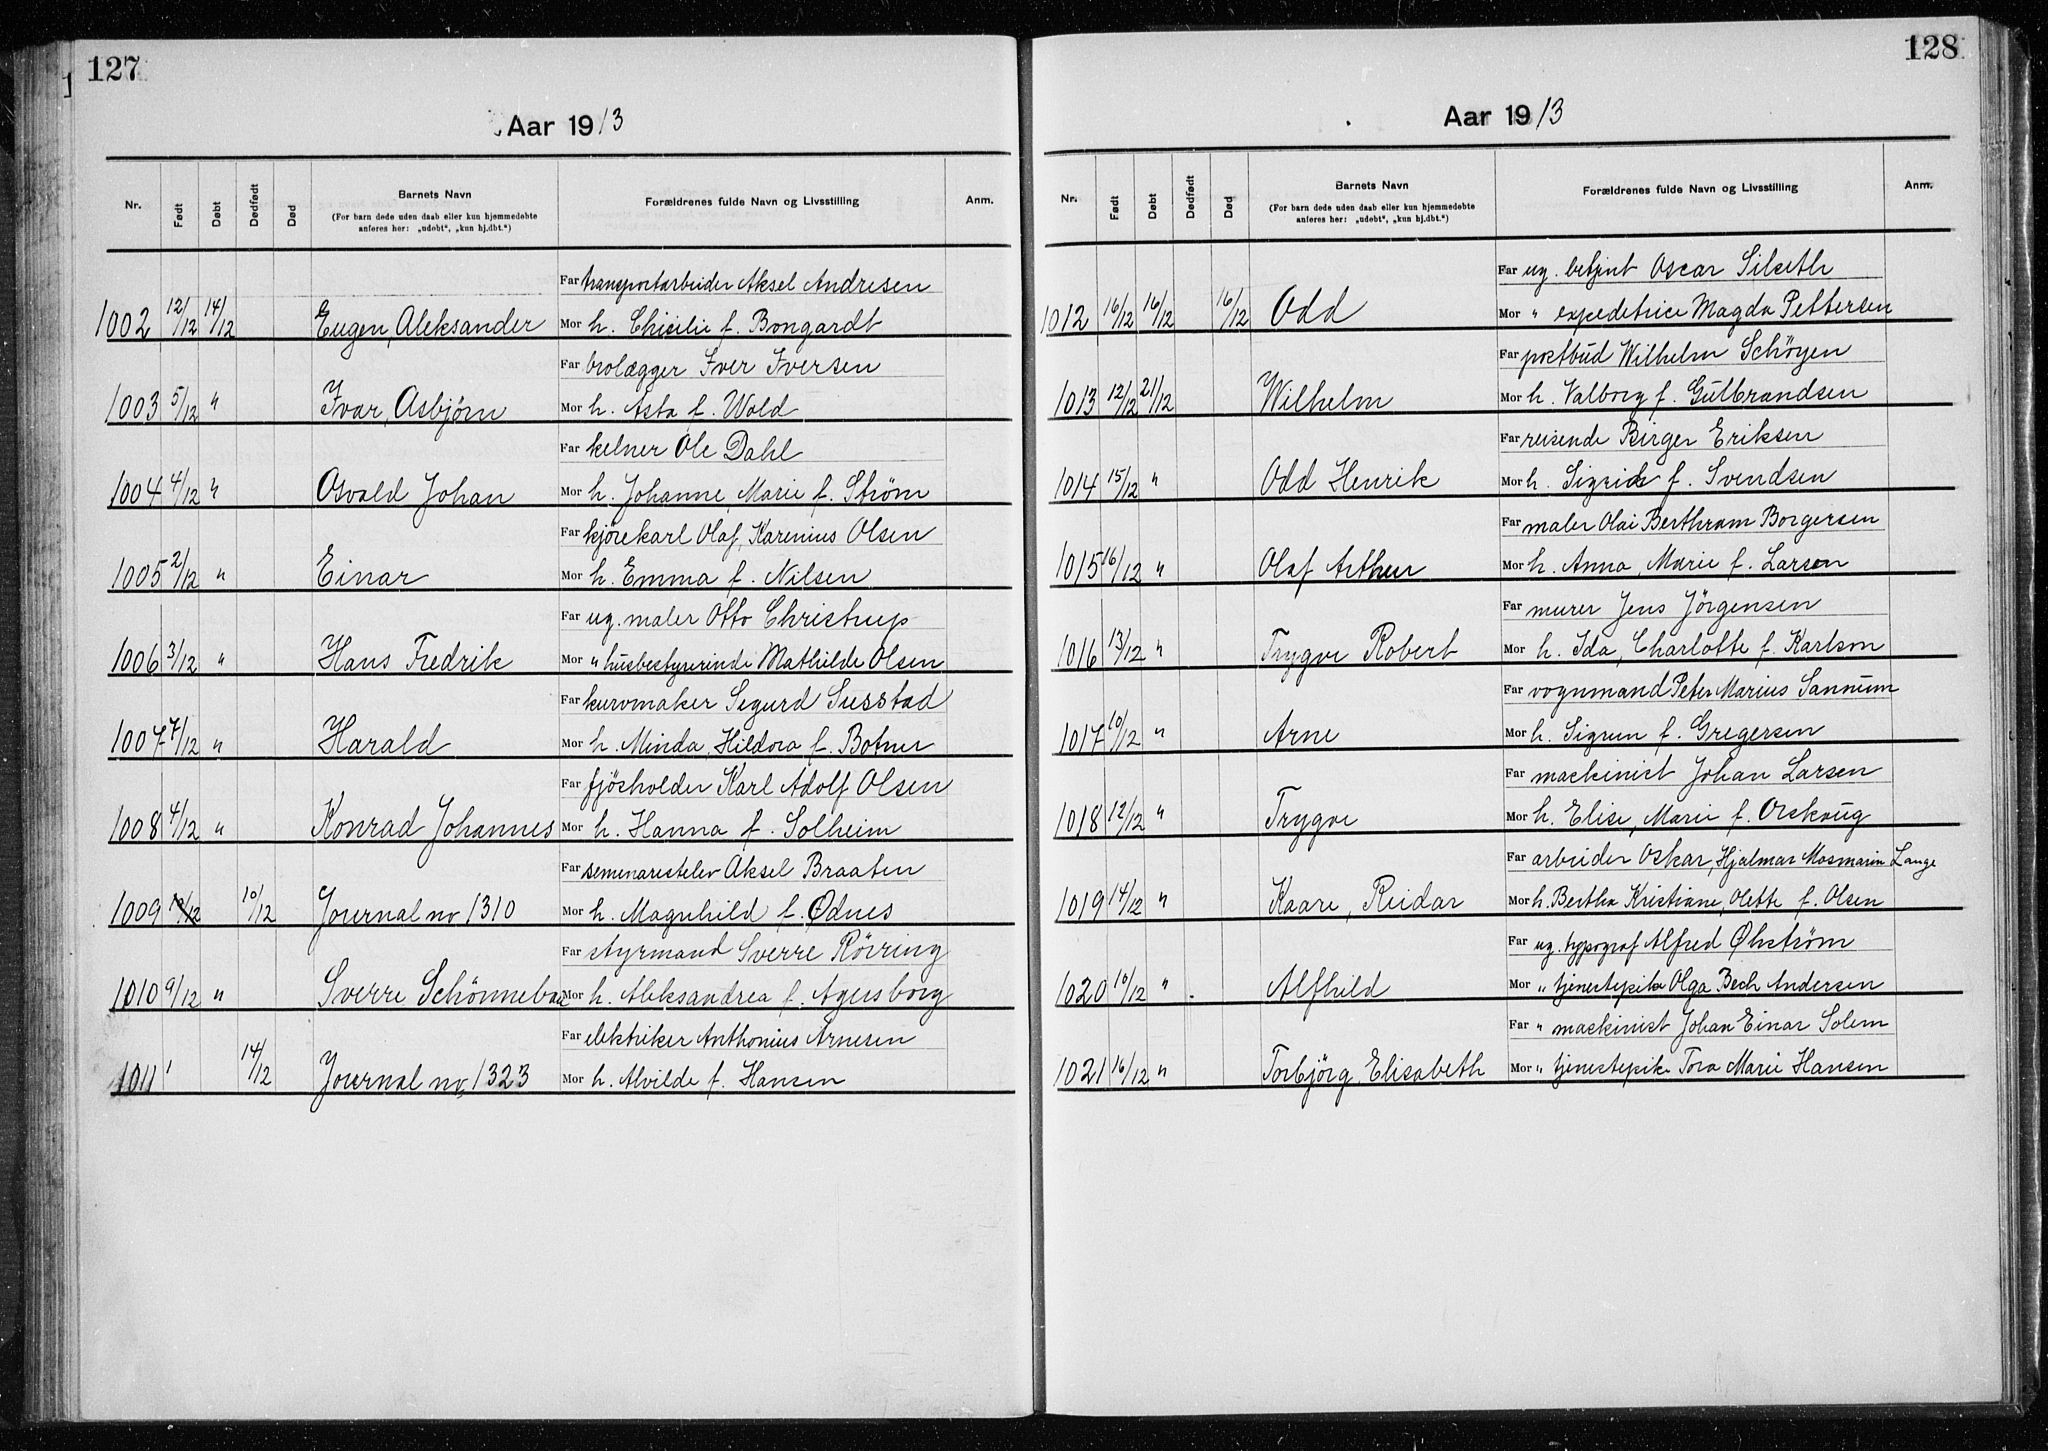 127
Aar 1913
Nr. Født Døbt Dødfødt Død Barnets Navn (For barn døde uden daab eller kun hjemmedøbte anføres her: „udøbt“, „kun hj.dbt.“) Forældrenes fulde Navn og Livsstilling Anm.
Far transportarbeider Aksel Andresen
1002 12/12 14/12 Eugen, Aleksander Mor h. Chicilie f. Bongardt
Far brolægger Iver Iversen
1003 5/12 " Ivar, Asbjørn Mor h. Asta f. Wold
Far kelner Ole Dahl
1004 4/12 " Osvald Johan Mor h. Johanne, Marie f. Strøm
Far kjørekarl Olaf, Karenius Olsen
1005 2/12 " Einar Mor h. Emma f. Nilsen
Far ug. maler Otto Christrup
1006 3/12 " Hans Fredrik Mor " husbestyrerinde Mathilde Olsen
Far kurvmaker Sigurd Susstad
1007 7/12 " Harald Mor h. Minda, Hildora f. Botner
Far fjösholder Karl Adolf Olsen
1008 4/12 " Konrad Johannes Mor h. Hanna f. Solheim
Far seminaristelev Aksel Braaten
1009 10/12 10/12 Journal no 1310 Mor h. Magnhild f. Ødnes
Far styrmand Sverre Rövring
1010 9/12 " Sverre Mor h. Aleksandrea f. Agersborg
Far elektriker Anthonius Arnesen
1011 14/12 Journal no, 1323 Mor h. Alvilde f. Hansen
128
Aar 1913
Nr. Født Døbt Dødfødt Død Barnets Navn (For barn døde uden daab eller kun hjemmedøbte anføres her: „udøbt“, „kun hj.dbt.“) Forældrenes fulde Navn og Livsstilling Anm.
Far ug. betjent Oscar Silseth
1012 16/12 16/12 16/12 Odd Mor " expeditrice Magda Pettersen
Far postbud Wilhelm Schöyen
1013 12/12 21/12 Wilhelm Mor h. Valborg f. Gulbrandsen
Far reisende Birger Eriksen
1014 15/12 " Odd Henrik Mor h. Sigrid f. Svendsen
Far maler Olai Berthram Borgersen
1015 16/12 " Olaf Arthur Mor h. Anna, Marie f. Larsen
Far murer Jens Jörgensen
1016 13/12 " Trygve Robert Mor h. Ida, Charlotte f. Karlson
Far vognmand Peter Marius Sannum
1017 10/12 " Arne Mor h. Sigrun f. Gregersen
Far maskinist Johan Larsen
1018 12/12 " Trygve Mor h. Elise, Marie f. Orskoug
Far arbeider Oskar, Hjalmar Mosmarin Lange
1019 14/12 " Kaare, Reidar Mor h. Bertha Kristiane, Olette f. Olsen
Far ug. typograf Alfred Øhström
1020 10/12 " Alfhild Mor " tjenestepike Olga Bech Andersen
Far " maskinist Johan Einar Solem
1021 16/12 " Torbjörg Elisabeth Mor " tjenestepike Tora Marie Hansen